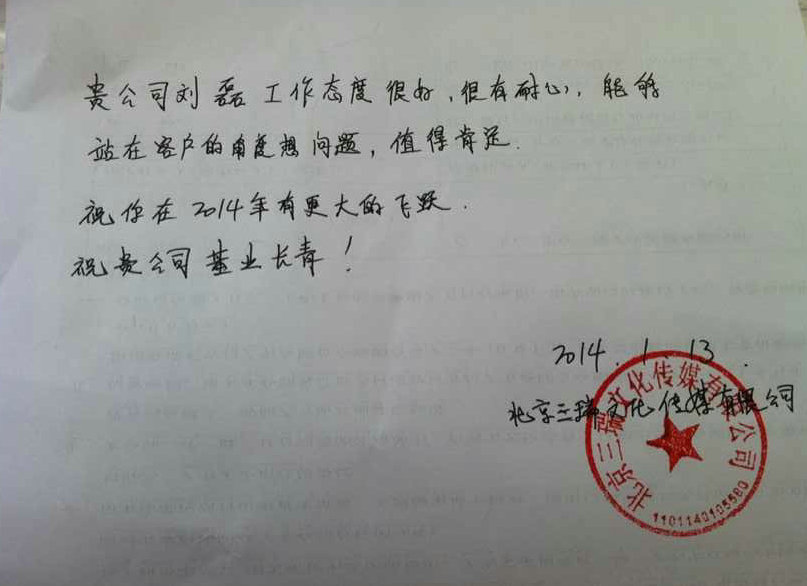 贵公司刘磊工作态度很好，很有耐心，能够
站在客户的角度想问题，值得肯定.
祝你在2014年有更大的飞跃.
祝贵公司基业长青！
2014.1.13.
北京三瑞文化传媒有限公司
北京三瑞文化传媒有限公司
1101140105580